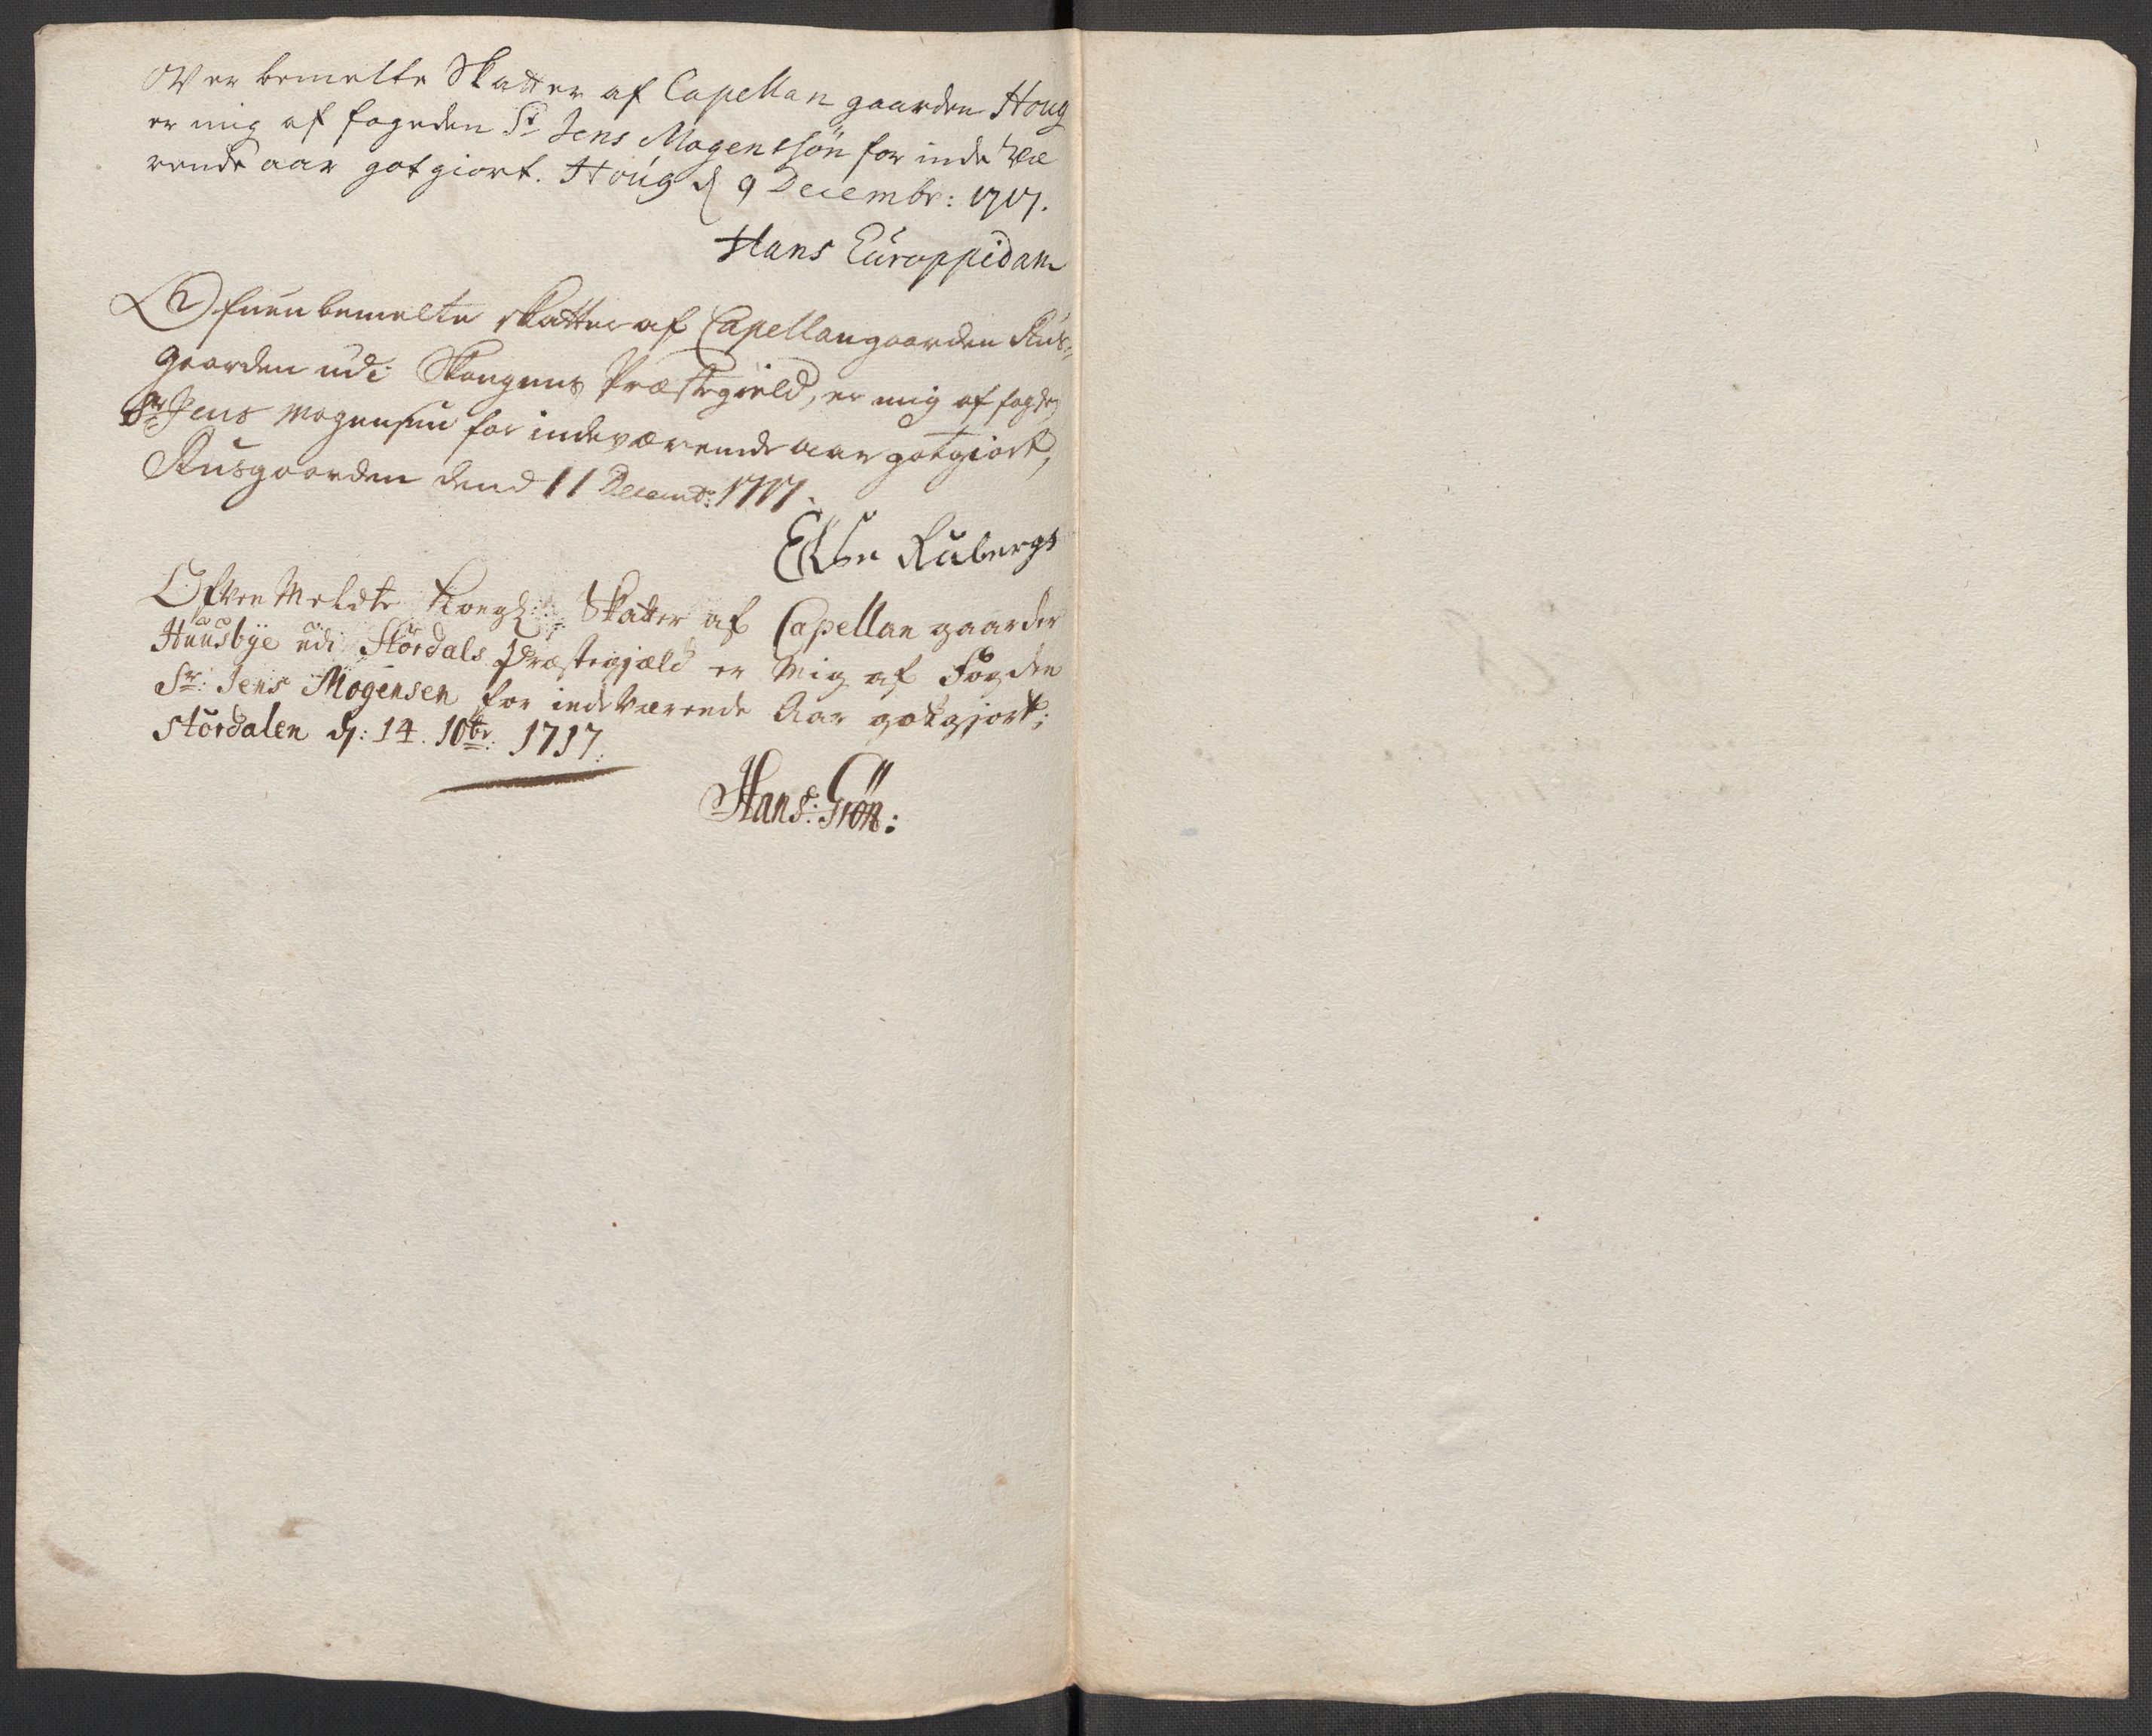 Over bemelte Skatter af Capellan gaarden Houg
er mig af fogeden Sr Jens Mogensøn for inde wæ
rende aar gotgiort. Houg d 9 Decembr: 1717.
Hans Europpidam
Ofuenbemelte skatter af Capellangaarden Rus-
gaarden udi Skongens Præstegield, er mig af fogden
Sr Jens Mogensen for indeværende aar gotgiort,
Rusgaarden dend 11 Decemb: 1717.
Rubergs
Ofven Meldte Kongl: Skatter af Capellan gaarden
Huusbye udi Størdals Præstegjæld er Mig af Fogden
Sr: Jens Mogensen for indeværende Aar gotgjort;
Størdalen d: 14. 10br: 1717.
Hans: Grøn: